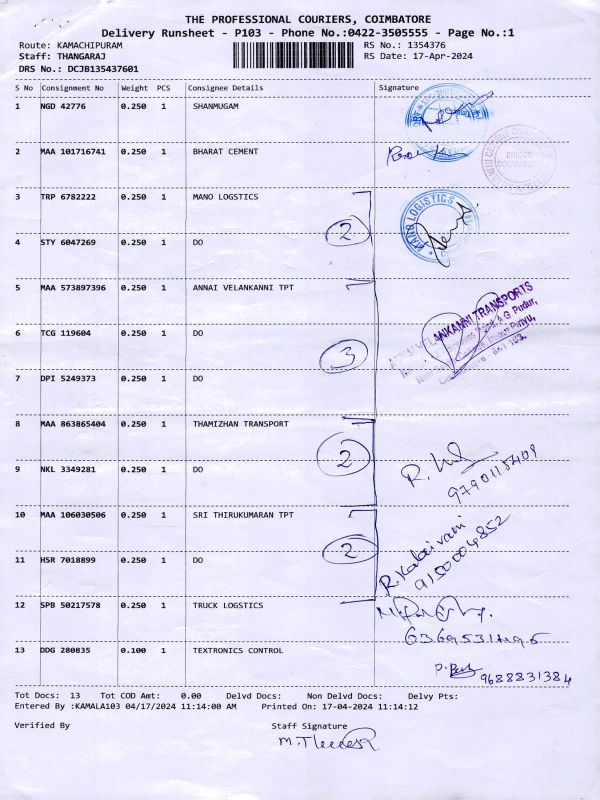 THE PROFESSIONAL COURIERS, COIMBATORE
Delivery Runsheet - P103 - Phone No.:0422-3505555 - Page No.:1
Route: KAMACHIPURAM RS No.: 1354376
Staff: THANGARAJ RS Date: 17-Apr-2024
DRS No.: DCJB135437601
S No Consignment No Weight PCS Consignee Details Signature
1 NGD 42776 0.250 1 SHANMUGAM
2 MAA 101716741 0.250 1 BHARAT CEMENT
3 TRP 6782222 0.250 1 MANO LOGSTICS
MANO LOGISTICS
2
4 STY 6047269 0.250 1 DO
5 MAA 573897396 0.250 1 ANNAI VELANKANNI TPT
VELANKANNI TRANSPORTS
6 TCG 119604 0.250 1 DO
3
7 DPI 5249373 0.250 1 DO
8 MAA 863865404 0.250 1 THAMIZHAN TRANSPORT
2
9 NKL 3349281 0.250 1 DO
9790115409
10 MAA 106030506 0.250 1 SRI THIRUKUMARAN TPT
2
11 HSR 7018899 0.250 1 DO
R.Kalaivani
9150004852
12 SPB 50217578 0.250 1 TRUCK LOGSTICS
13 DDG 280835 0.100 1 TEXTRONICS CONTROL
9688831384
Tot Docs: 13 Tot COD Amt: 0.00 Delvd Docs: Non Delvd Docs: Delvy Pts:
Entered By :KAMALA103 04/17/2024 11:14:00 AM Printed On: 17-04-2024 11:14:12
Verified By Staff Signature